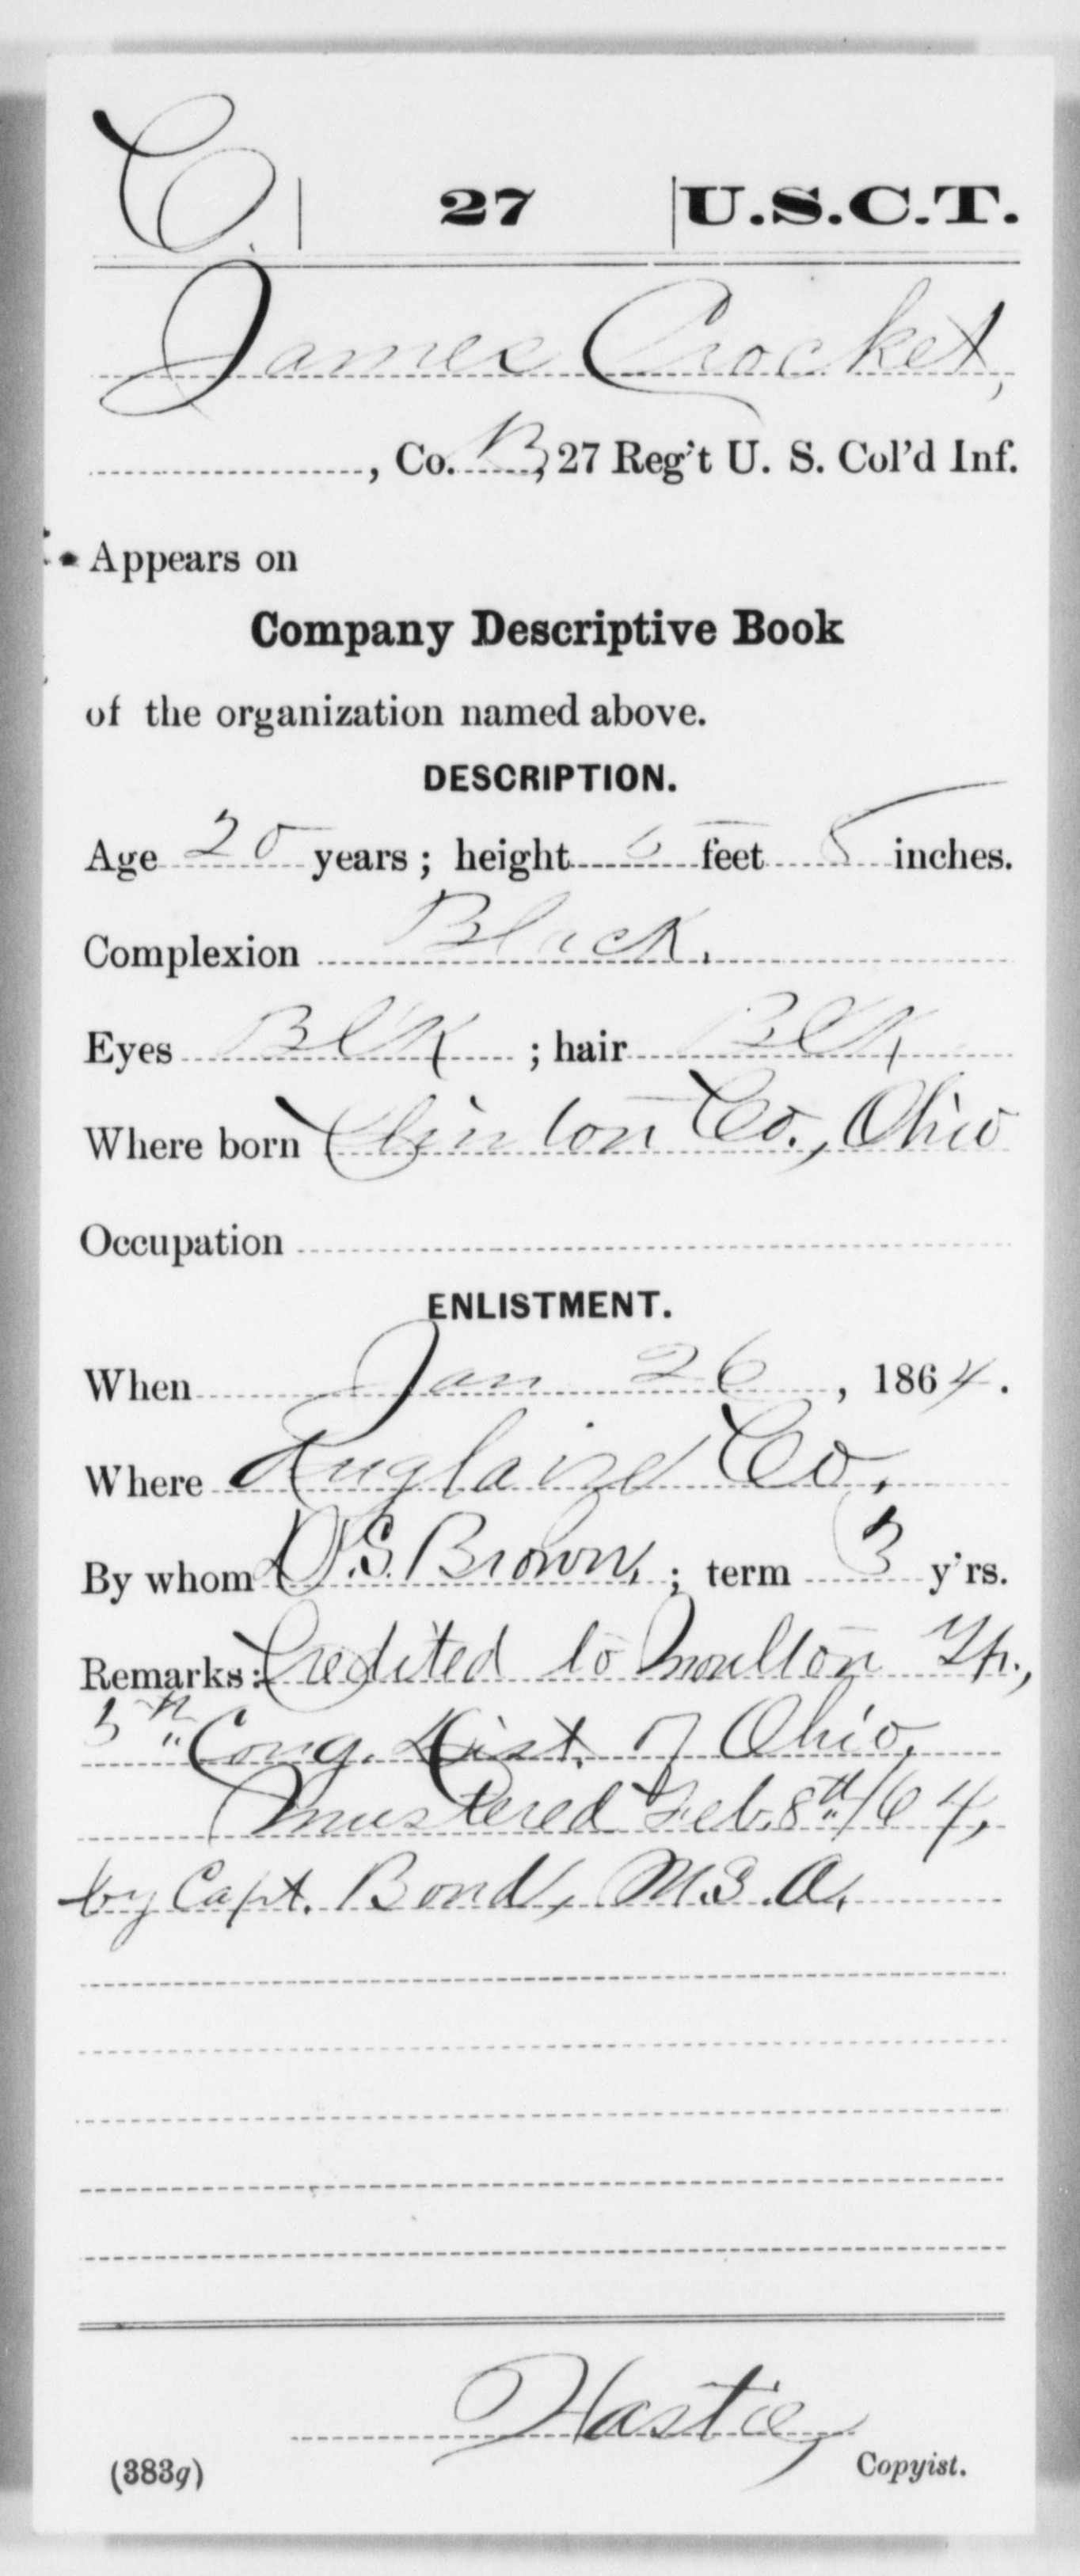 C | 27 | U.S.C.T.
James Crocket,
, Co. B, 27 Reg't U. S. Col'd Inf.
Appears on
Company Descriptive Book
of the organization named above.
DESCRIPTION.
Age 20 years; height 5 feet 8 inches.
Complexion Black.
Eyes Blk ; hair Blk
Where born Clinton Co., Ohio
Occupation
ENLISTMENT.
When Jan 26, 1864.
Where Auglaize Co,
By whom D.S. Brown, ; term 3 y'rs.
Remarks: Credited to Moulton Tp.,
5th Cong. Dist. of Ohio.
Mustered Feb. 8th/64,
by Capt. Bond, U.S.A.
Hastie
(383g) Copyist.